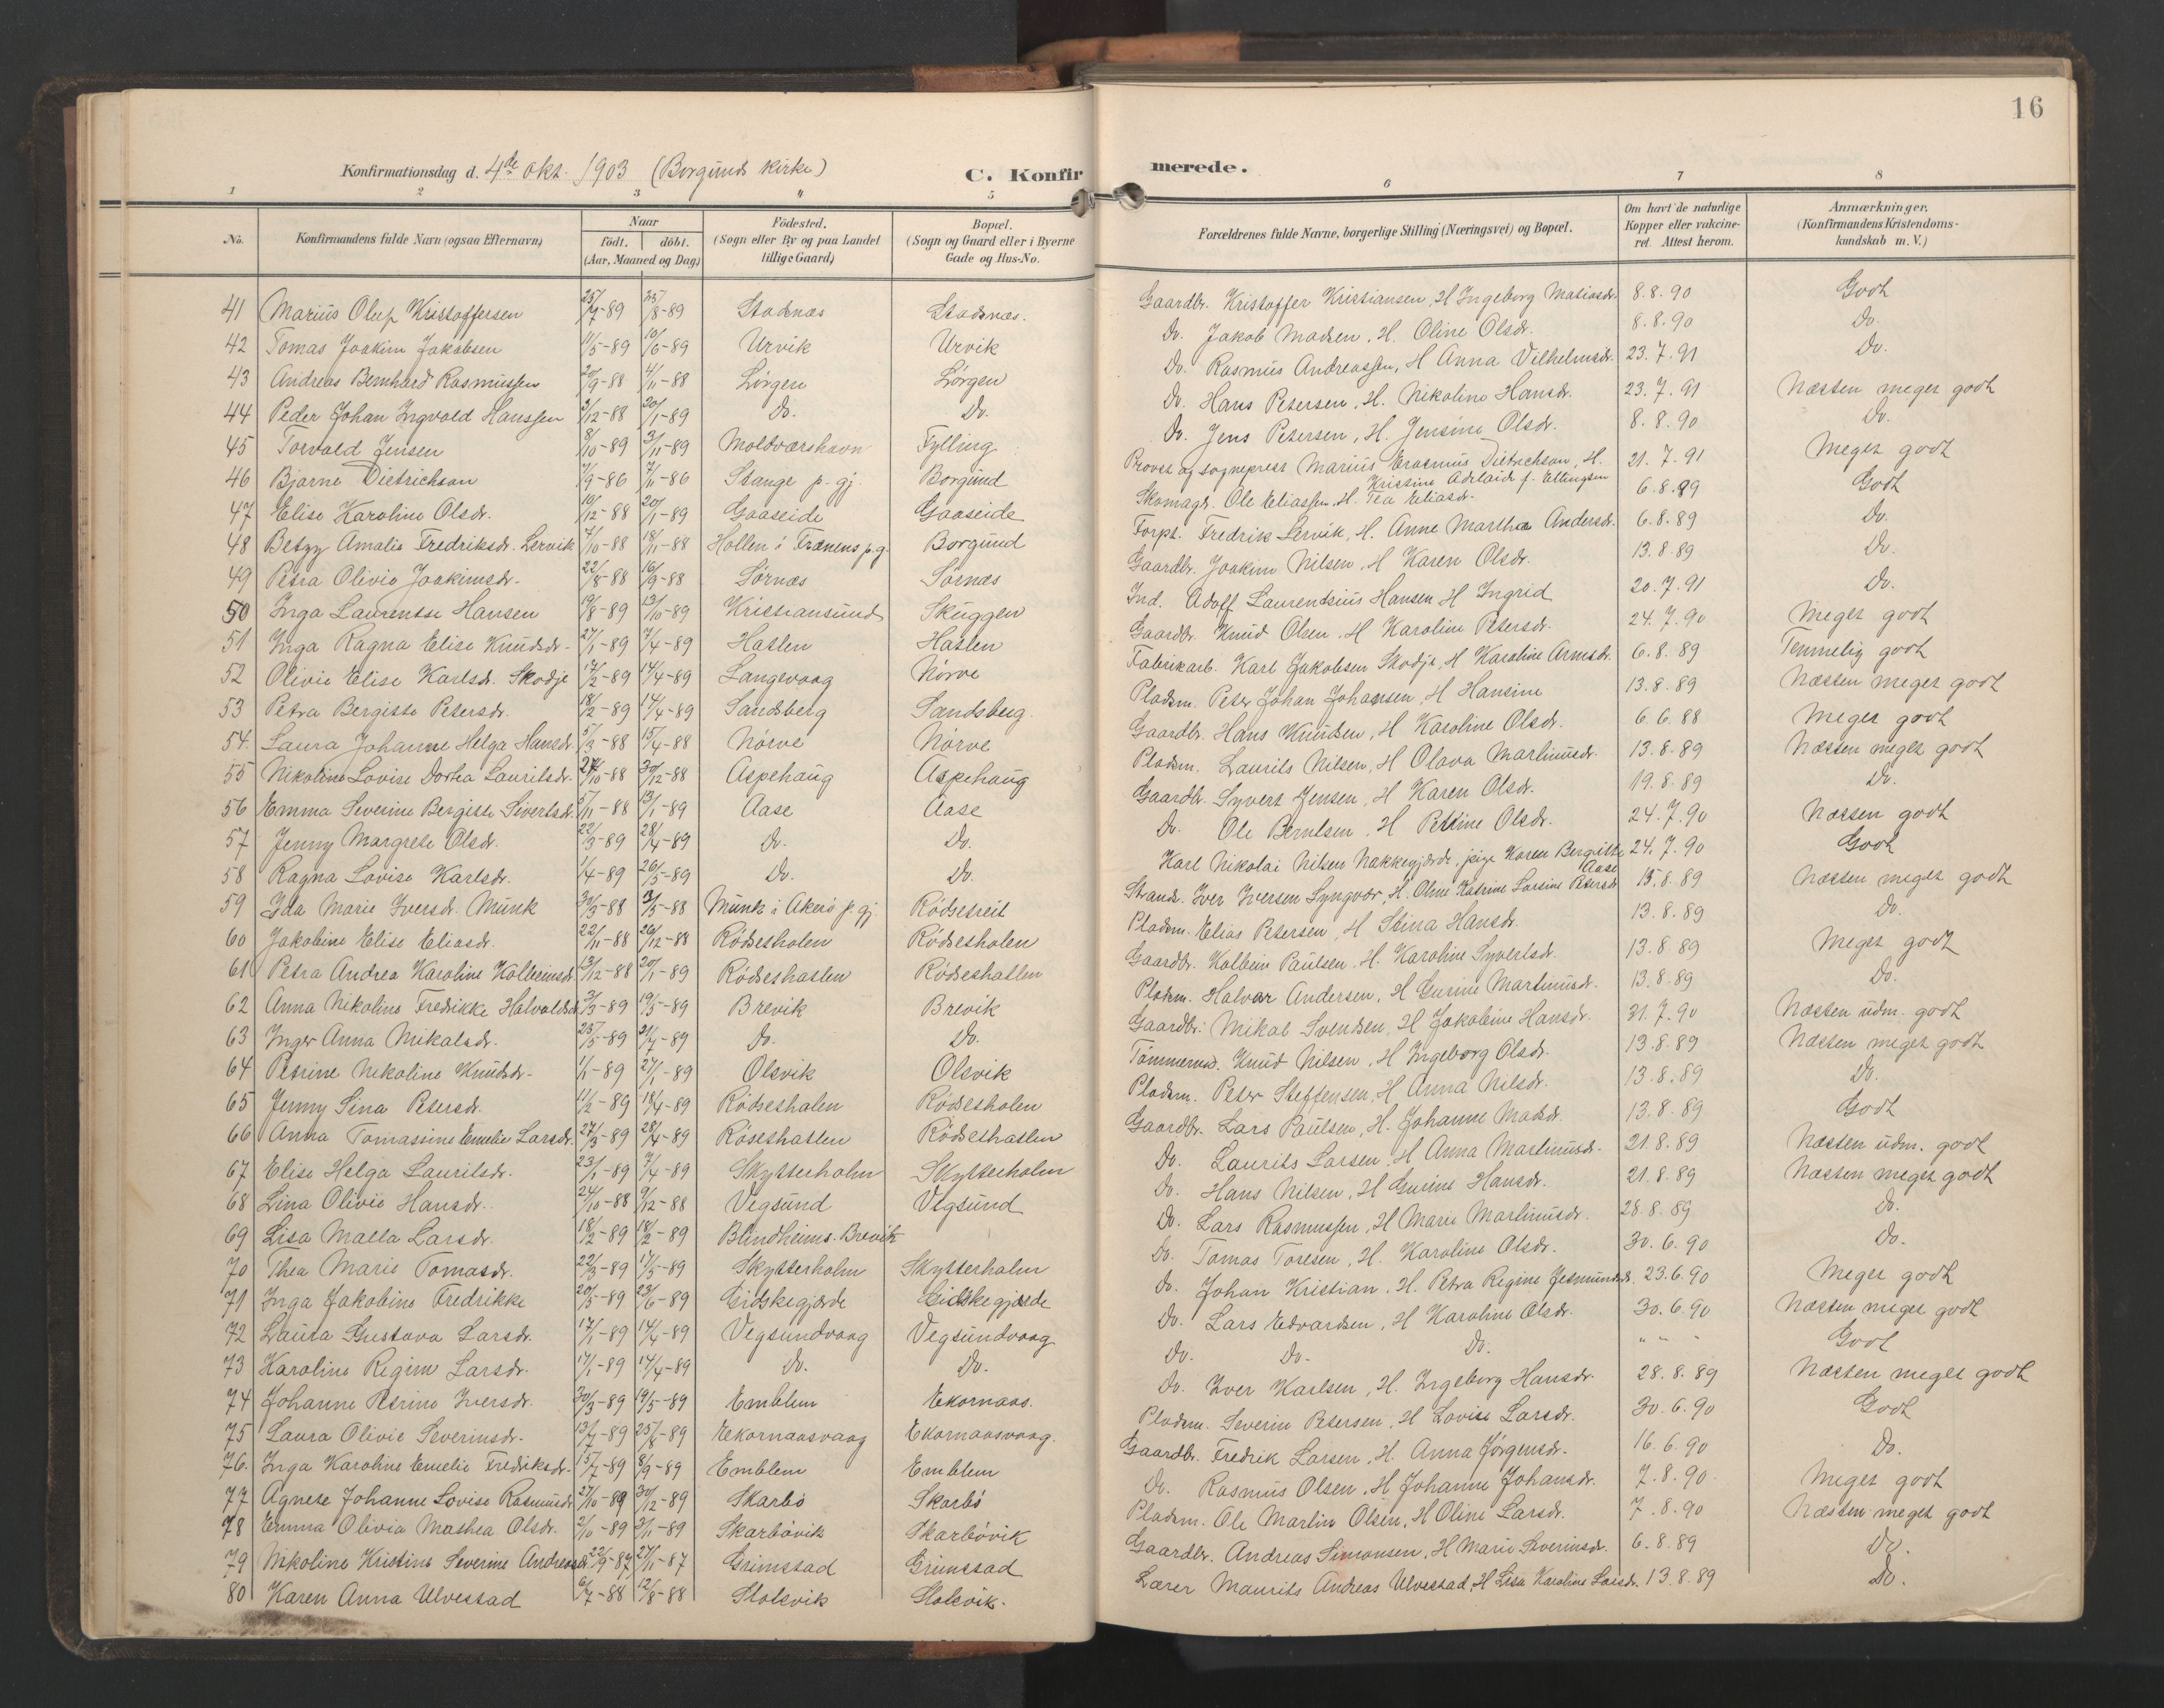 16
Konfirmationsdag d. 4de Okt. 1903 (Borgund Kirke)
C. Konfirmerede.
1 2 3 4 5 6 7 8
No.
Konfirmandens fulde Navn (ogsaa Efternavn)
Naar
födt. döbt.
(Aar, Maaned og Dag)
Födested.
(Sogn eller By og paa Landet
tillige Gaard)
Bopæl.
(Sogn og Gaard eller i Byerne
Gade og Hus-No.
Forældrenes fulde Navne, borgerlige Stilling (Næringsvei) og Bopæl.
Om havt de naturlige
Kopper eller vakcine-
ret. Attest herom.
Anmærkninger.
(Konfirmandens Kristendoms-
kundskab m. V.)
41 Marius Oluf Kristoffersen 25/7-89 25/8-89 Stadsnæs Stadsnæs. Gaardbr. Kristoffer Kristiansen, H Ingeborg Matiasdr. 8.8.90 Godt
42 Tomas Joakim Jakobsen 11/5-89 10/6-89 Urvik Urvik Do. Jakob Madsen, H. Oline Olsdr. 8.8.90 Do.
43 Andreas Bernhard Rasmussen 20/9-88 4/11-88 Lørgen Lørgen Do. Rasmus Andreassen, H Anna Vilhelmsdr. 23.7.91 Do.
44 Peder Johan Ingvald Hanssen 3/12-88 20/1-89 Do. Do. Do. Hans Petersen, H. Nikoline Hansdr. 23.7.91 Næsten meget godt
45 Torvald Jensen 8/10-89 3/11-89 Moldværshavn Fylling Do. Jens Petersen, H. Jensine Olsdr. 8.8.90 Do.
46 Bjarne Dietrichson 9/9-86 7/11-86 Stange p. gj. Borgund Provst og sogneprest Marius Erasmus Dietrichson, H. Kristine Adelaide f. Ellingsen 21.7.91 Meget godt
47 Elise Karoline Olsdr. 10/12-88 20/1-89 Gaaseide Gaaseide Skomagr. Ole Eliassen, H. Tea Eliasdr. 6.8.89 Godt
48 Betzy Amalie Fredriksdr. Lervik 7/10-88 18/11-88 Hollen i Frænens p.g. Borgund Forpt. Fredrik Lervik, H. Anne Martha Andersdr. 6.8.89 Do.
49 Petra Olivie Joakimsdr. 22/8-88 16/9-88 Sørnæs Sørnæs Gaardbr. Joakim Nilsen, H Karen Olsdr. 13.8.89 Do.
50 Inga Laurentse Hansen 19/8-89 13/10-89 Kristiansund Skuggen Ind. Adolf Laurentsius Hansen H Ingrid 20.7.91 Do.
51 Inga Ragna Elise Knudsdr. 27/1-89 7/4-89 Hatlen Hatlen Gaardbr. Knud Olsen, H Karoline Petersdr. 24.7.90 Meget godt
52 Olivie Elise Karlsdr. Skodje 17/2-89 14/4-89 Langevaag Nørve Fabrikarb. Karl Jakobsen Skodje, H Karoline Arnesdr. 6.8.89 Temmelig godt
53 Petra Bergitte Petersdr. 18/2-89 14/4-89 Sandsberg Sandsberg. Pladsm. Peter Johan Johansen, H Hansine 13.8.89 Næsten meget godt
54. Laura Johanne Helga Hansdr. 5/3-88 15/4-88 Nørve Nørve Gaardbr. Hans Knudsen, H Karoline Olsdr. 6.6.88 Meget godt
55 Nikoline Lovise Dortea Lauritsdr. 24/10-88 30/12-88 Aspehaug Aspehaug Pladsm. Laurits Nilsen, H Olava Martinusdr. 13.8.89 Næsten meget godt
56 Emma Severine Bergitte Sivertsdr. 5/11-88 13/1-89 Aase Aase Gaardbr. Syvert Jensen, H Karen Olsdr. 19.8.89 Do.
57 Jenny Margrete Olsdr. 22/3-89 28/4-89 Do. Do. Do. Ole Berntsen, H Pettine Olsdr. 24.7.90 Næsten godt
58 Ragna Lovise Karlsdr. 1/4-89 26/5-89 Do. Do. Karl Nikolai Nilsen Nakkegjærde, pige Karen Bergitte Aase 24.7.90 Godt
59 Ida Marie Iversdr. Munk 30/3-88 3/5-88 Munk i Akerø p. gj. Rødseteit Strands. Iver Iversen Lyngvær, H. Oline Katrine Larsine Petersdr 15.8.89 Næsten meget godt
60 Jakobine Elise Eliasdr. 22/11-88 26/12-88 Rødsesholen Rødsesholen Pladsm. Elias Petersen, H Stina Hansdr. 13.8.89 Do.
61 Petra Andrea Karoline Kolbeinsdr 13/12-88 20/1-89 Rødseshatlen Rødseshatlen Gaardbr. Kolbein Paulsen. H. Karoline Syvertsdr. 13.8.89 Meget godt
62 Anna Nikoline Fredrikke Halvaldsdr. 3/3-89 19/5-89 Brevik Brevik Pladsm. Halvar Andersen, H Gurine Martinusdr. 13.8.89 Do.
63 Inger Anna Mikalsdr. 25/5-89 21/7-89 Do. Do. Gaardbr. Mikal Svendsen, H Jakobine Hansdr. 31.7.90 Næsten udm. godt
64 Petrine Nikoline Knudsdr. 1/1-89 27/1-89 Olsvik Olsvik Tømmermd. Knud Nilsen, H Ingeborg Olsdr. 13.8.89 Næsten meget godt
65 Jenny Sina Petersdr. 11/2-89 18/4-89 Rødseshalen Rødsesholen Pladsm. Peter Steffensen, H Anna Nilsdr. 13.8.89 Do.
66 Anna Tomassine Emelie Larsdr. 27/3-89 28/4-89 Røseshatlen Rødseshatlen Gaardbr. Lars Paulsen, H. Johanne Madsdr. 13.8.89 Godt
67 Elise Helga Lauritsdr. 23/1-89 7/4-89 Skytterholm Skytterholm Do. Laurits Larsen, H Anna Martinusdr. 21.8.89 Næsten udm. godt
68 Lina Olivie Hansdr. 24/10-88 9/12-88 Vegsund Vegsund Do. Hans Nilsen, H Gurine Hansdr. 21.8.89 Næsten meget godt
69 Lisa Malla Larsdr. 18/2-89 18/2-89 Blindheims-Brevik Do. Lars Rasmussen, H Marie Martinusdr. 28.8.89 Do.
70 Thea Marie Tomasdr. 22/3-89 17/5-89 Skytterholm Skytterholm Do. Tomas Toresen, H. Karoline Olsdr. 30.6.90 Do.
71 Inga Jakobine Fredrikke 20/5-89 23/6-89 Gidskegjærde Gidskegjærde Do. Johan Kristian, H. Petra Regine Jetmundsdr. 23.6.90 Meget godt
72 Laura Gustava Larsdr. 17/1-89 14/4-89 Vegsundvaag Vegsundvaag Do. Lars Edvardsen, H Karoline Olsdr. 30.6.90 Næsten meget godt
73 Karoline Regine Larsdr. 17/1-89 14/4-89 Do. Do. Do. Do. Do. " " " Godt
74 Johanne Petrine Iversdr. 30/3-89 19/5-89 Emblem Ekornaas. Do. Iver Karlsen, H. Ingeborg Hansdr. 28.8.89 Næsten meget godt
75 Laura Olivie Severinsdr. 13/7-89 25/8-89 Ekornaasvaag Ekornaasvaag. Pladsm. Severin Petersen, H Lovise Larsdr. 30.6.90 Godt
76. Inga Karoline Emelie Fredriksdr. 15/7-89 8/9-89 Emblem Emblem Gaardbr. Fredrik Larsen, H. Anna Jørgensdr. 16.6.90 Do.
77 Agnete Johanne Lovise Rasmusdr 27/10-89 30/12-89 Skarbø Skarbø Do. Rasmus Olsen, H Johanne Johansdr. 7.8.90 Meget godt
78 Emma Olivia Mathea Olsdr. 2/10-89 3/11-89 Skarbøvik Skarbøvik Pladsm. Ole Martin Olsen, H Oline Larsdr. 7.8.90 Næsten meget godt
79 Nikoline Kristine Severine Andreasdr 22/9-87 27/11-87 Grimstad Grimstad Gaardbr. Andreas Simonsen, H Marie Severinsdr. 6.8.89 Do.
80 Karen Anna Ulvestad 6/7-88 12/8-88 Slotsvik Slotsvik. Lærer Maurits Andreas Ulvestad, H Lisa Karoline Larsdr. 13.8.89 Do.